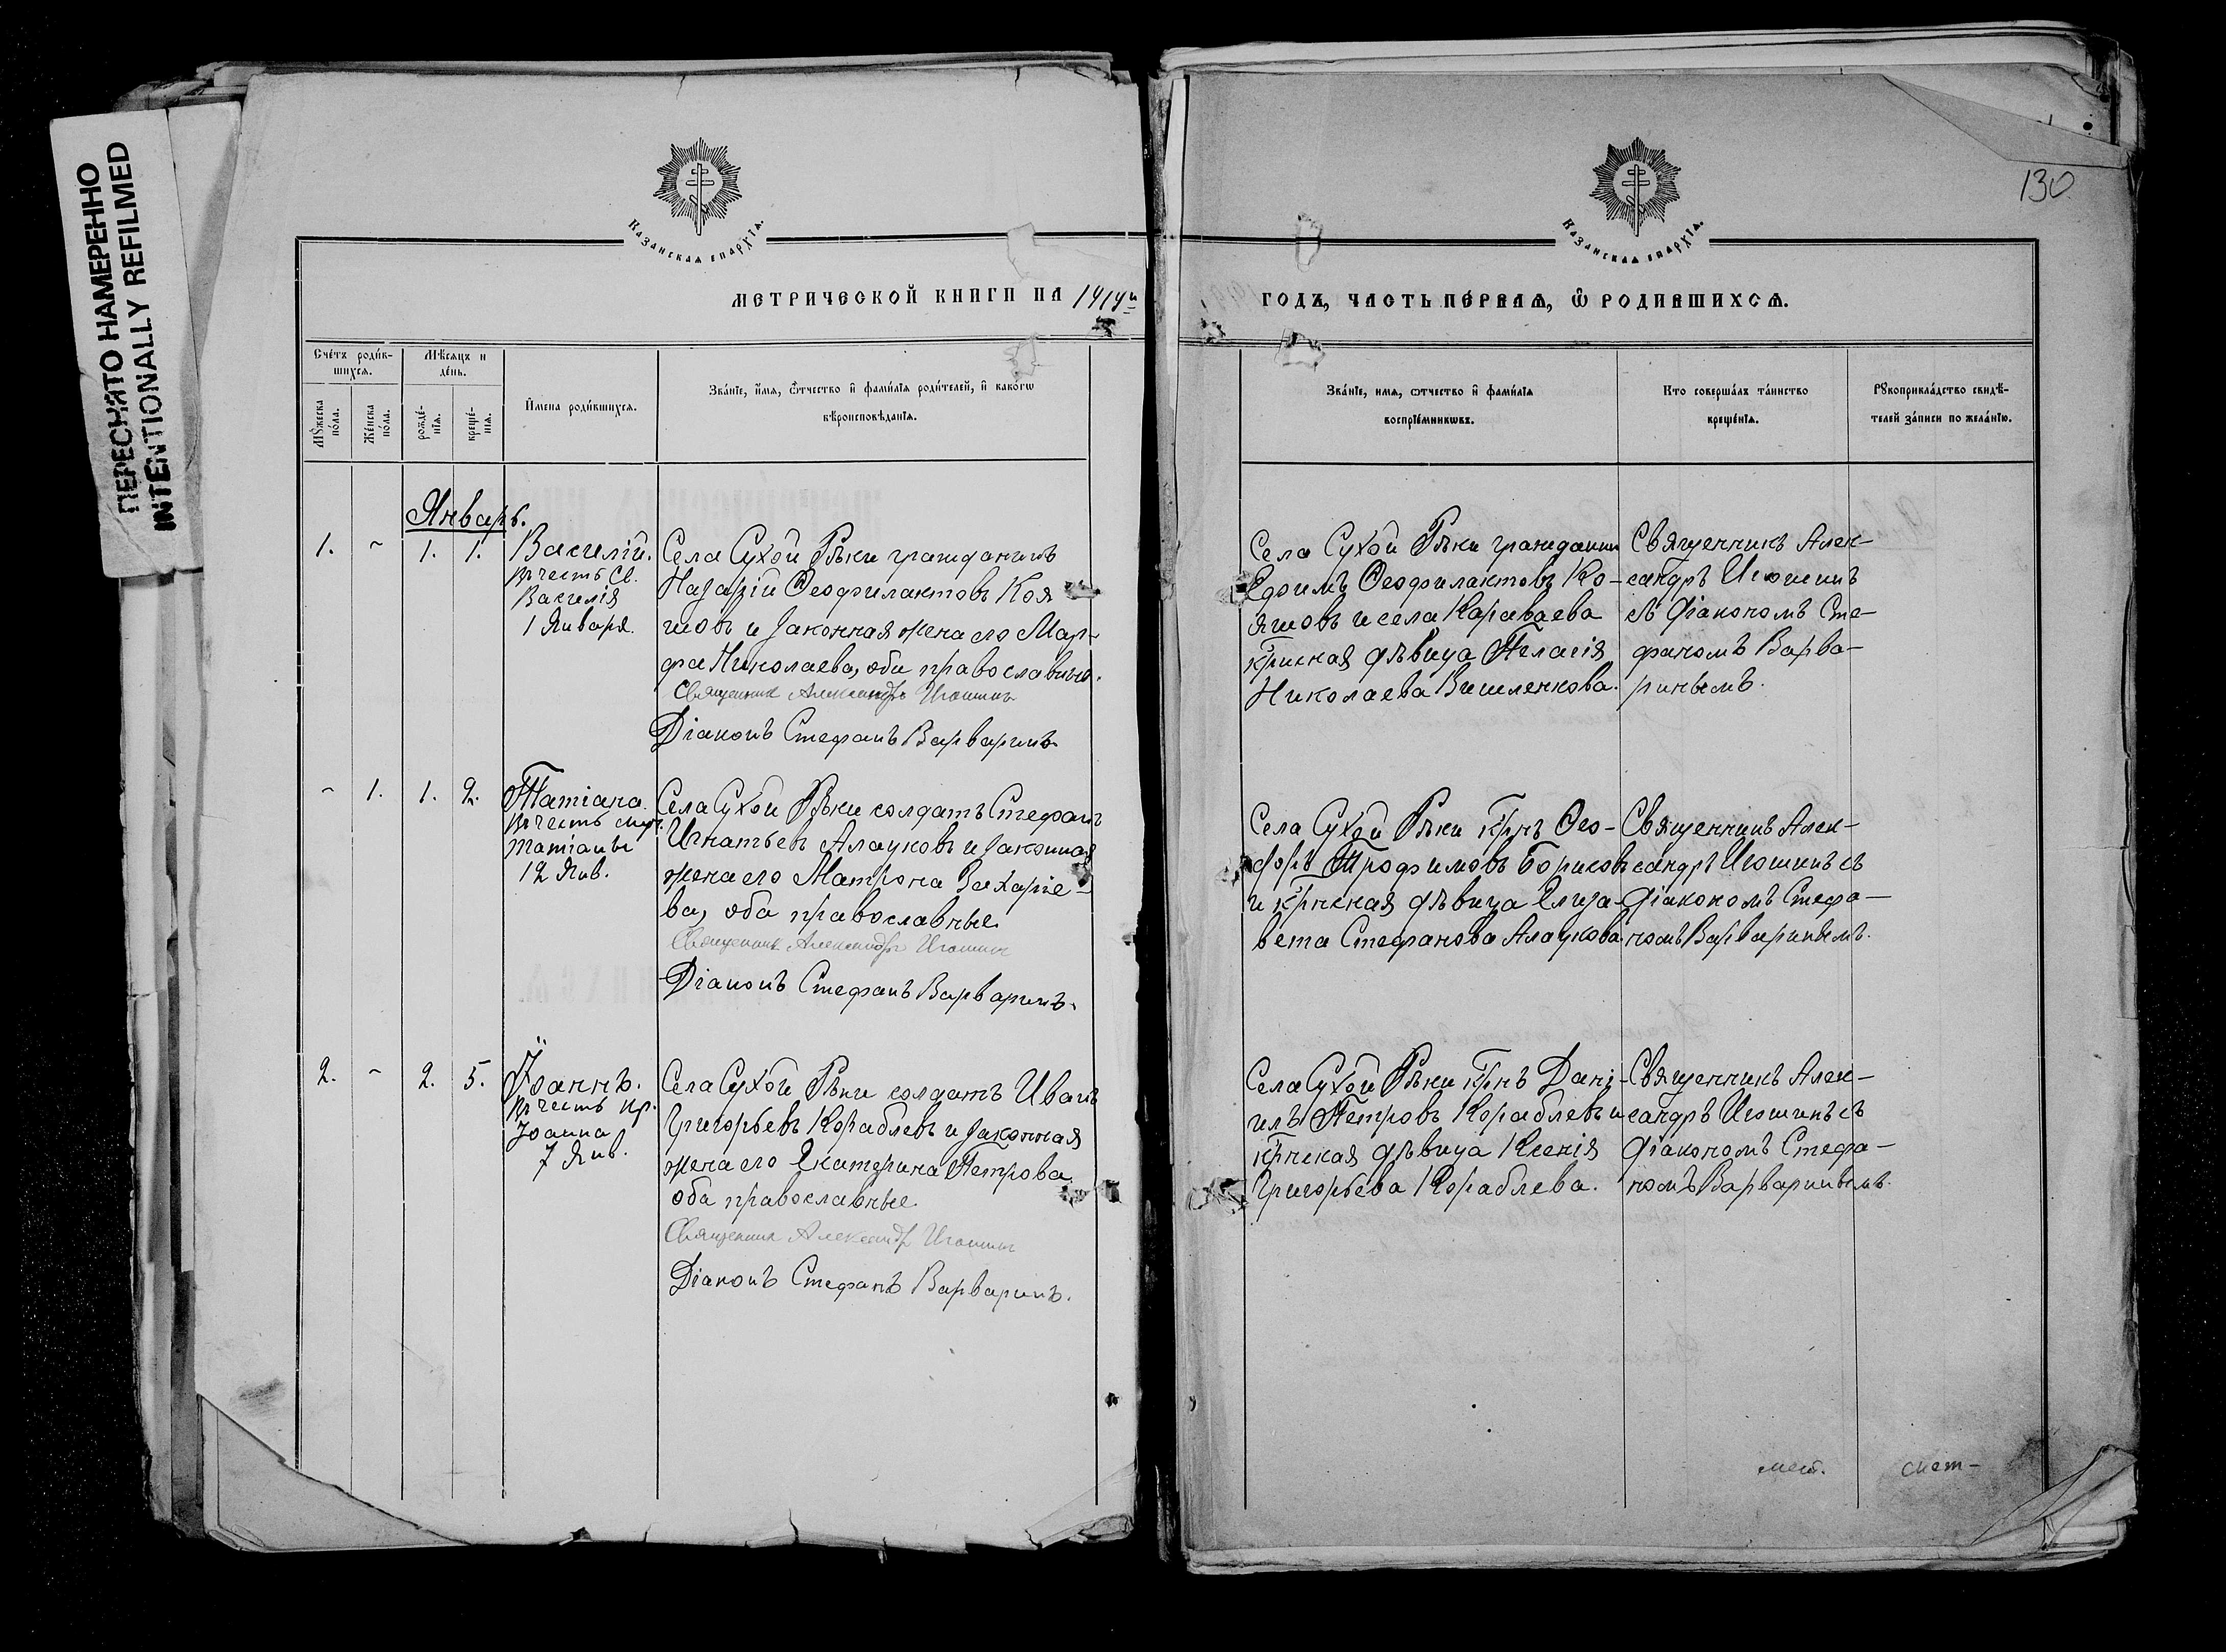 ПЕРЕСНЯТО НАМЕРЕННО
INTENTIONALLY REFILMED
130
КАЗАНСКАЯ ЕПАРХІЯ.
КАЗАНСКАЯ ЕПАРХІЯ.
МЕТРИЧЕСКОЙ КНИГИ НА 1914й
ГОДЪ, ЧАСТЬ ПЕ́РВАЯ, Ѡ РОДИВШИХСЯ.
Сче́тъ роди́в-
шихся.
Мѣ́сяцъ и
де́нь.
Мꙋ́жеска
по́ла.
Же́нска
по́ла.
рожде́-
нїя.
креще́-
нїя.
И́мена роди́вшихся.
Зва́нїе, и҆́мя, ѻ҆́тчество и҆ фами́лїя роди́телей, и҆ како́гѡ
вѣроисповѣ́данїя.
Зва́нїе, имя, ѻтчество и҆ фами́лїя
воспрїе́мникѡвъ.
Кто соверша́лъ та́инство
креще́нїя.
Рꙋкоприкла́дство свидѣ́-
телей за́писи по жела́нїю.
Январь.
1. - 1. 1. Василій.
въ честь Св.
Василія
1 Января.
Села Сухой Рѣки гражданинъ
Назарій Ѳеофилактовъ Коя
шовъ и законная жена его Мар-
фа Николаева, оба православные.
Священникъ Александръ Игошинъ
Діаконъ Стефанъ Варваринъ.
Села Сухой Рѣки гражданин
Ефимъ Ѳеофилактовъ Ко-
яшовъ и села Караваева
крнская дѣвица Пелагія
Николаева Вишленкова.
Священникъ Алек-
сандръ Игошинъ
съ діакономъ Сте-
фаномъ Варва-
ринымъ.
- 1. 1. 2. Татіана.
въ честь муч.
Татіаны
12 Янв.
Села Сухой Рѣки солдатъ Стефанъ
Игнатьевъ Алауковъ и законная
жена его Матрона Захаріе-
ва, оба православные.
Священникъ Александръ Игошинъ
Діаконъ Стефанъ Варваринъ.
Села Сухой Рѣки крнъ Ѳео-
форъ Трофимовъ Борисовъ
и крнская дѣвица Елиза-
вета Стефанова Алаукова.
Священникъ Алек-
сандръ Игошинъ съ
діакономъ Стефа-
номъ Варваринымъ.
2. - 2. 5. Іоаннъ.
въ честь пр.
Іоанна
7 Янв.
Села Сухой Рѣки солдатъ Иванъ
Григорьевъ Кораблевъ и законная
жена его Екатерина Петрова
оба православные
Священникъ Александръ Игошинъ
Діаконъ Стефанъ Варваринъ.
Села Сухой Рѣки крнъ Дані-
илъ Петровъ Кораблевъ и
крнская дѣвица Ксенія
Григорьева Кораблева.
Священникъ Алек-
сандръ Игошинъ съ
діакономъ Стефа-
номъ Варваринымъ.